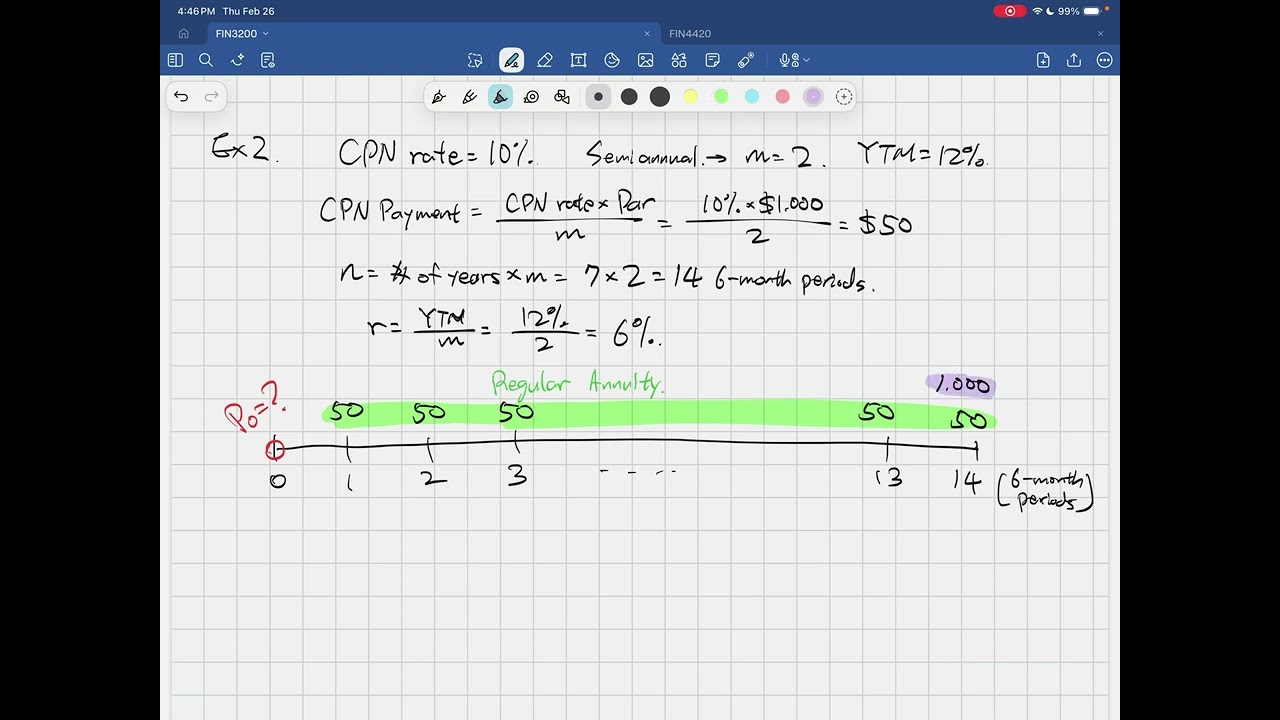 4:46 PM Thu Feb 26
99%
FIN3200
FIN4420
Ex2. CPN rate = 10%. Semiannual. → m = 2. YTM = 12%.
CPN Payment = CPN rate × Par / m = 10% × $1,000 / 2 = $50
n = # of years × m = 7 × 2 = 14 6-month periods.
r = YTM / m = 12% / 2 = 6%.
Regular Annuity.
1.000
P0 = ?
50 50 50 50 50
0 1 2 3 - - - - 13 14 (6-month periods)